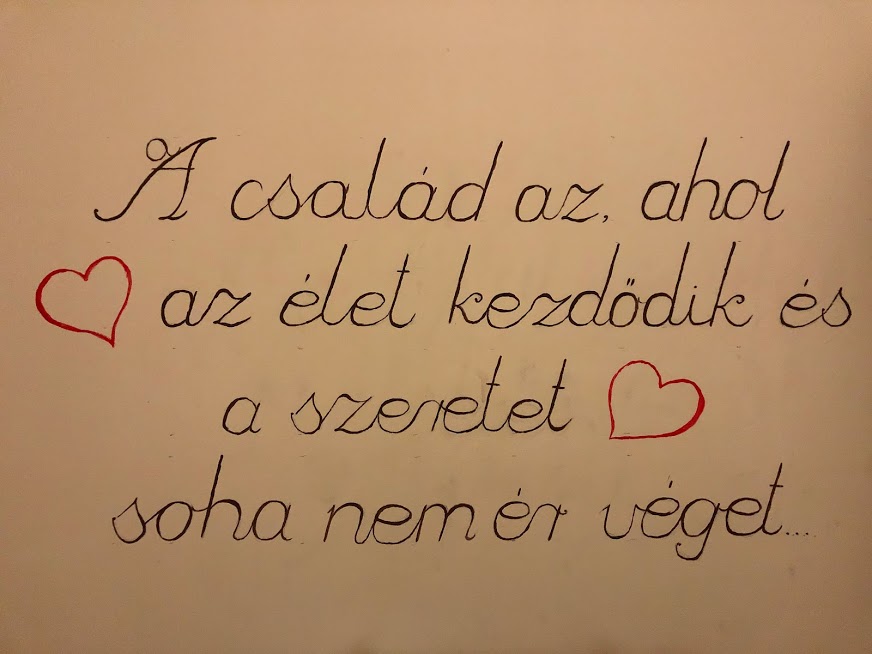 A család az, ahol
az élet kezdődik és
a szeretet
soha nem ér véget...